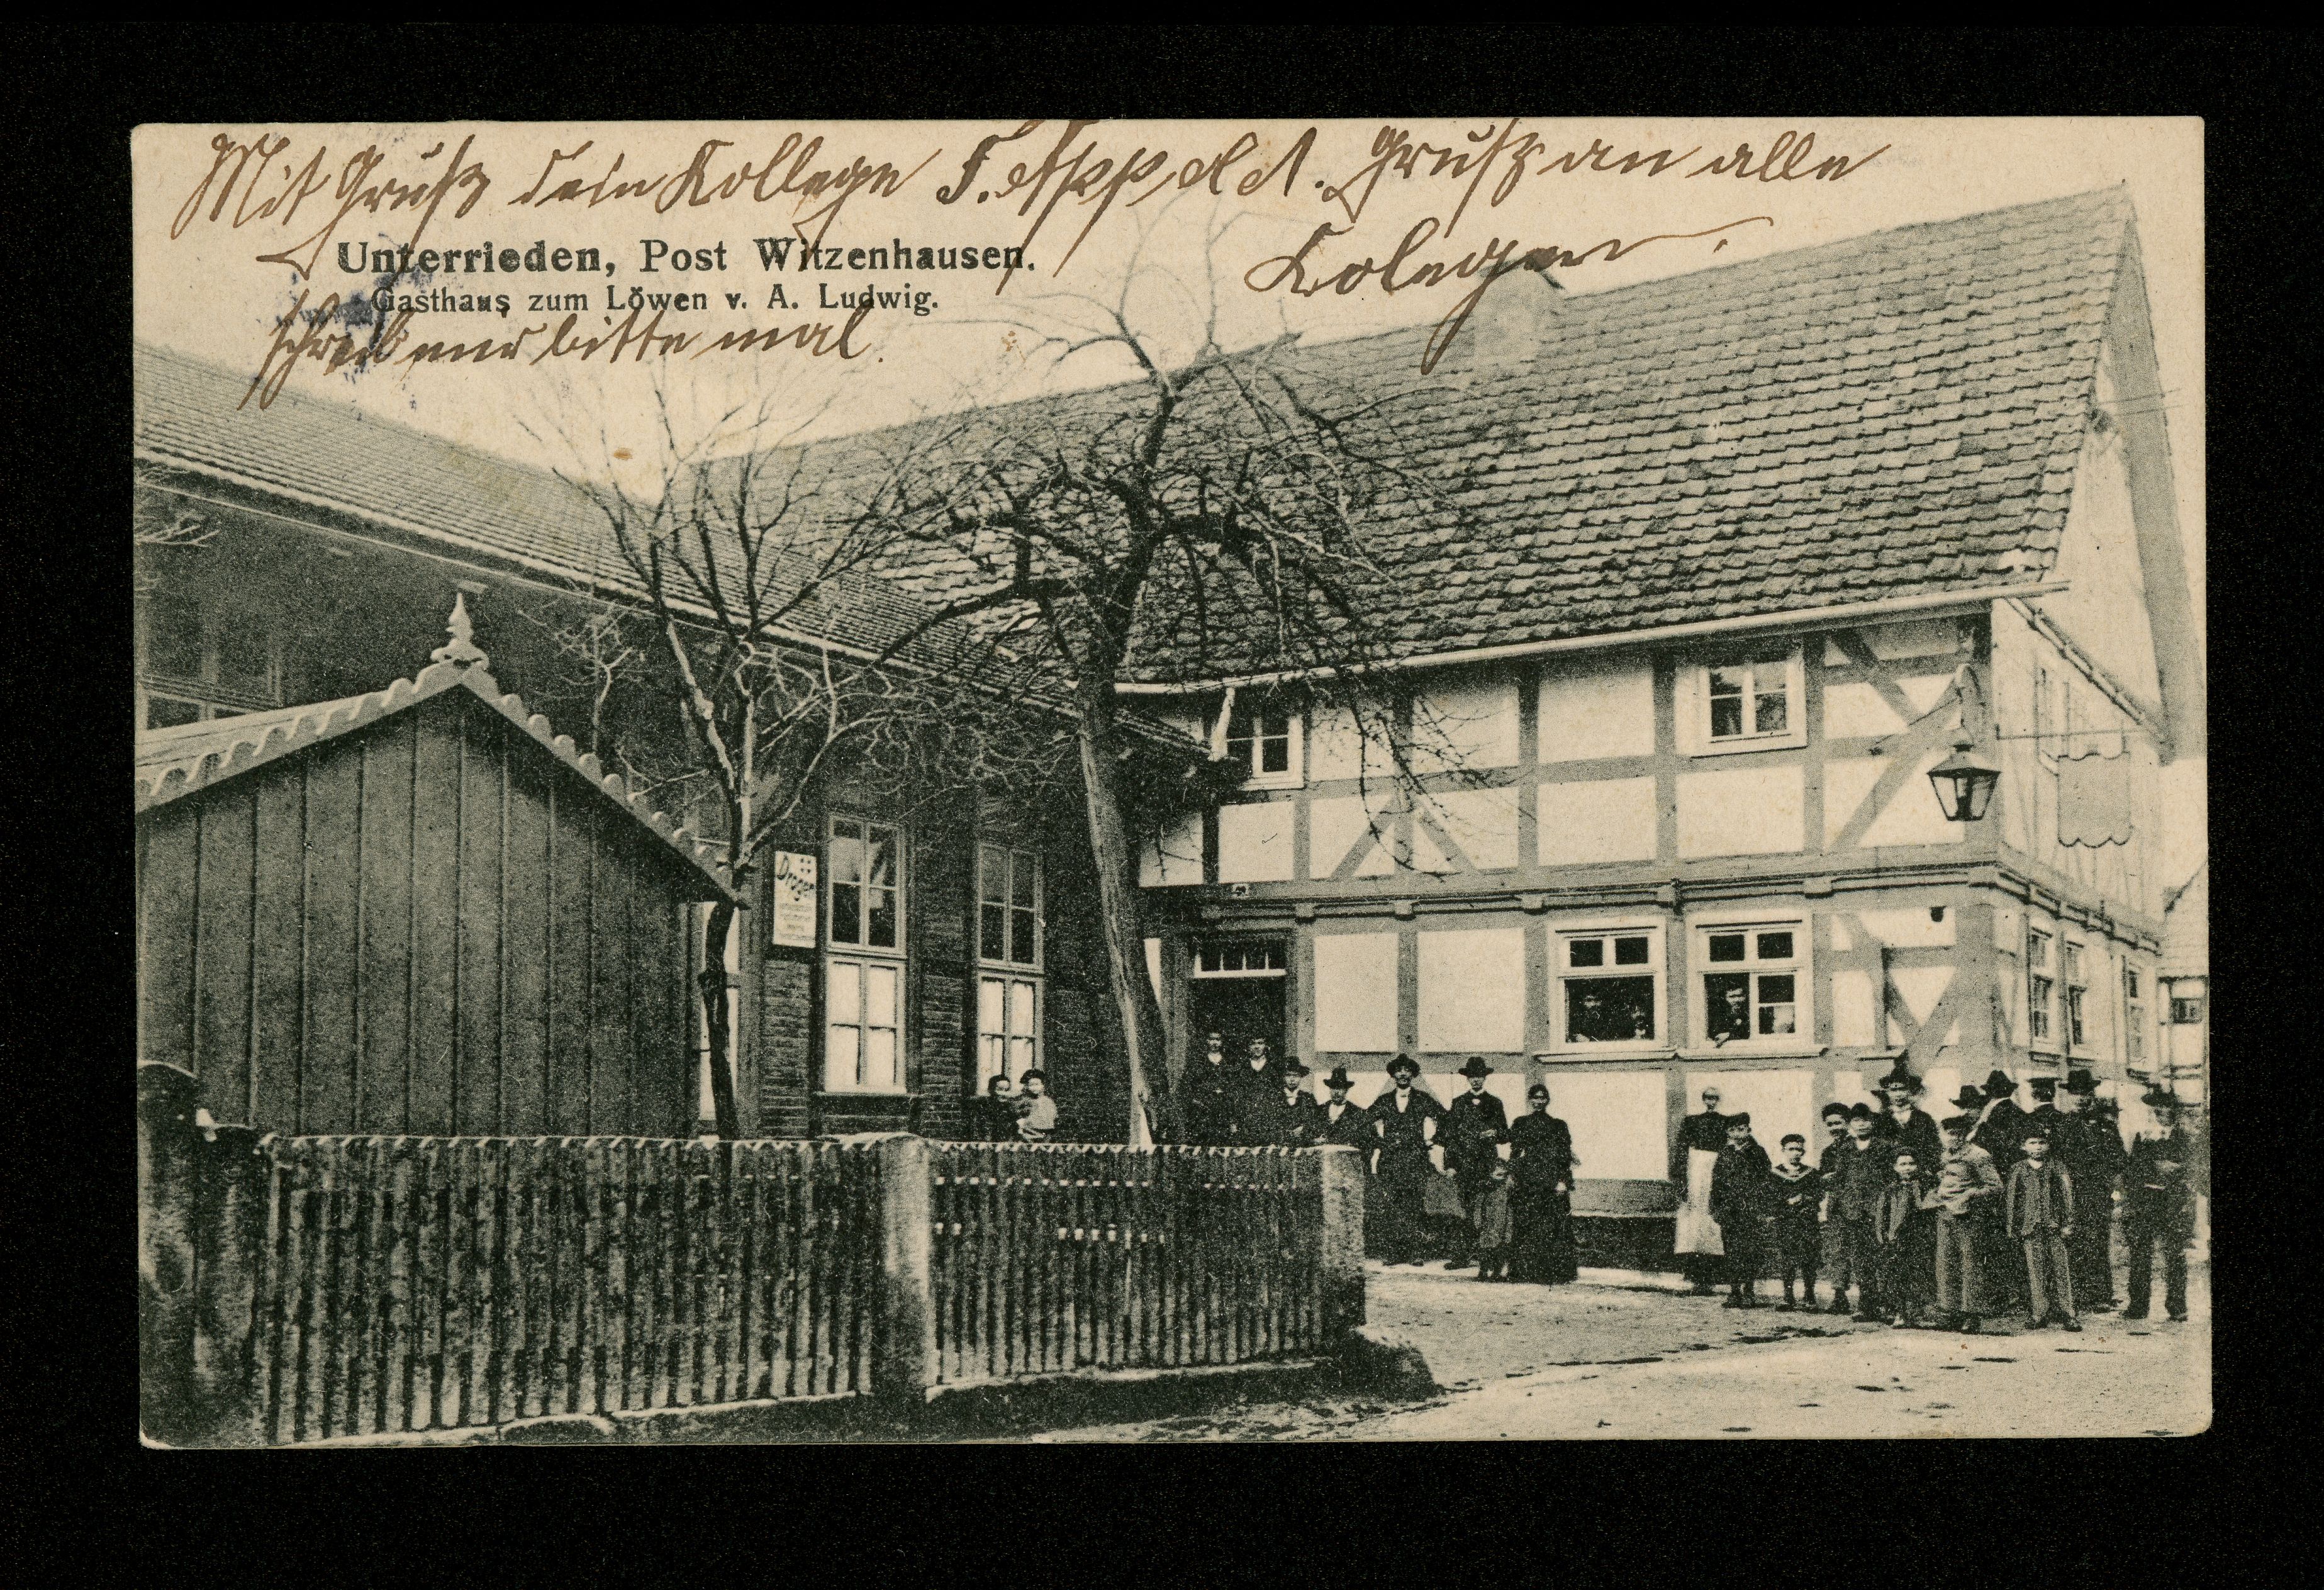 Mit Gruß dein Kollege F. Gruß an alle
Kolegen.
Unterrieden, Post Witzenhausen.
Gasthaus zum Löwen v. A. Ludwig.
schreib mir bitte mal.
Dröger